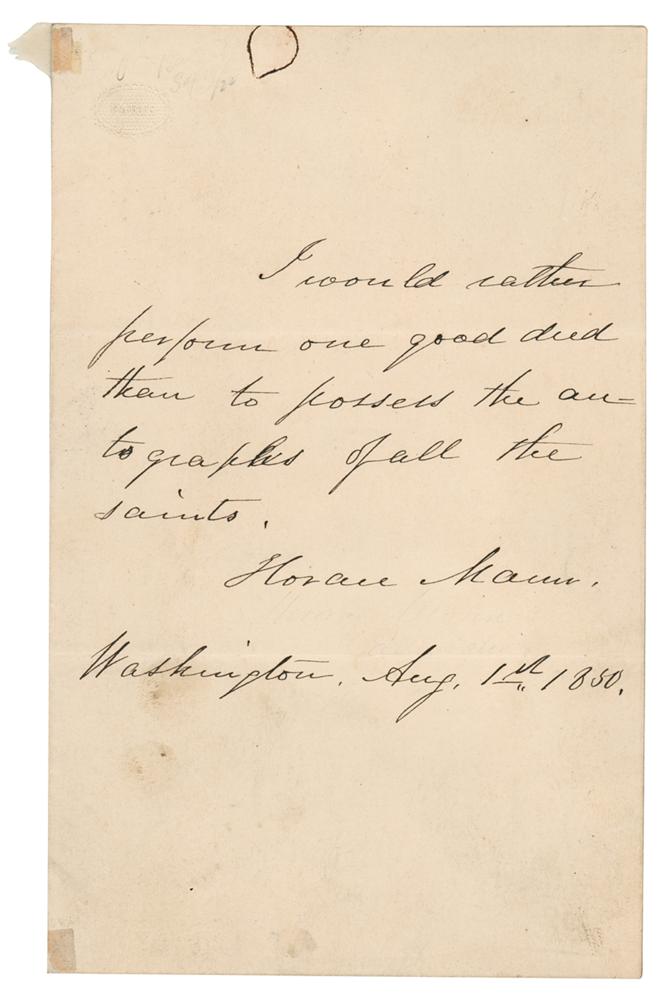 I would rather
perform one good deed
than to possess the au-
tographs of all the
saints.
Horace Mann.
Washington, Aug. 1st 1850.